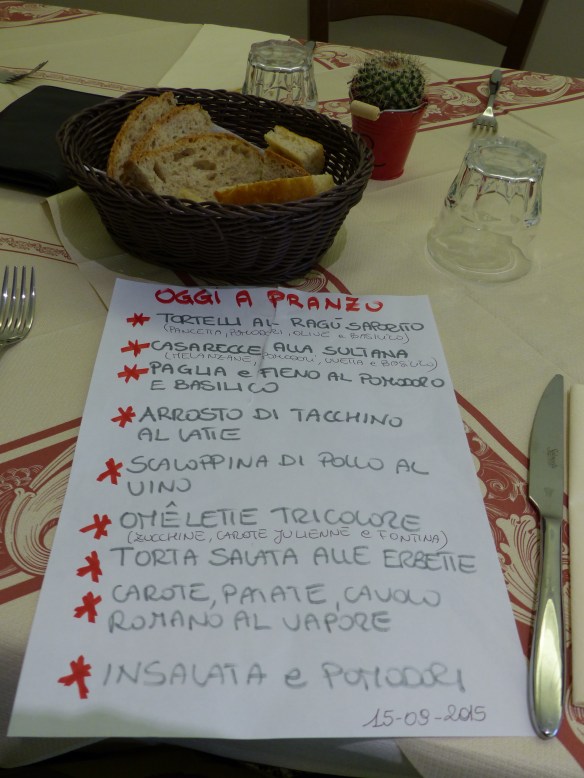 OGGI A PRANZO
* TORTELLI AL RAGÚ SAPORITO
(PANCETTA, POMODORI, OLIVE e BASILICO)
* CASARECCE ALLA SULTANA
(MELANZANE, POMODORI, UVETTA e BASILICO)
* PAGLIA e FIENO AL POMODORO
E BASILICO
* ARROSTO DI TACCHINO
AL LATTE
* SCALOPPINA DI POLLO AL
VINO
* OMÊLETTE TRICOLORE
(ZUCCHINE, CAROTE JULIENNE e FONTINA)
* TORTA SALATA ALLE ERBETTE
* CAROTE, PATATE, CAVOLO
ROMANO AL VAPORE
* INSALATA e POMODORI
15-09-2015